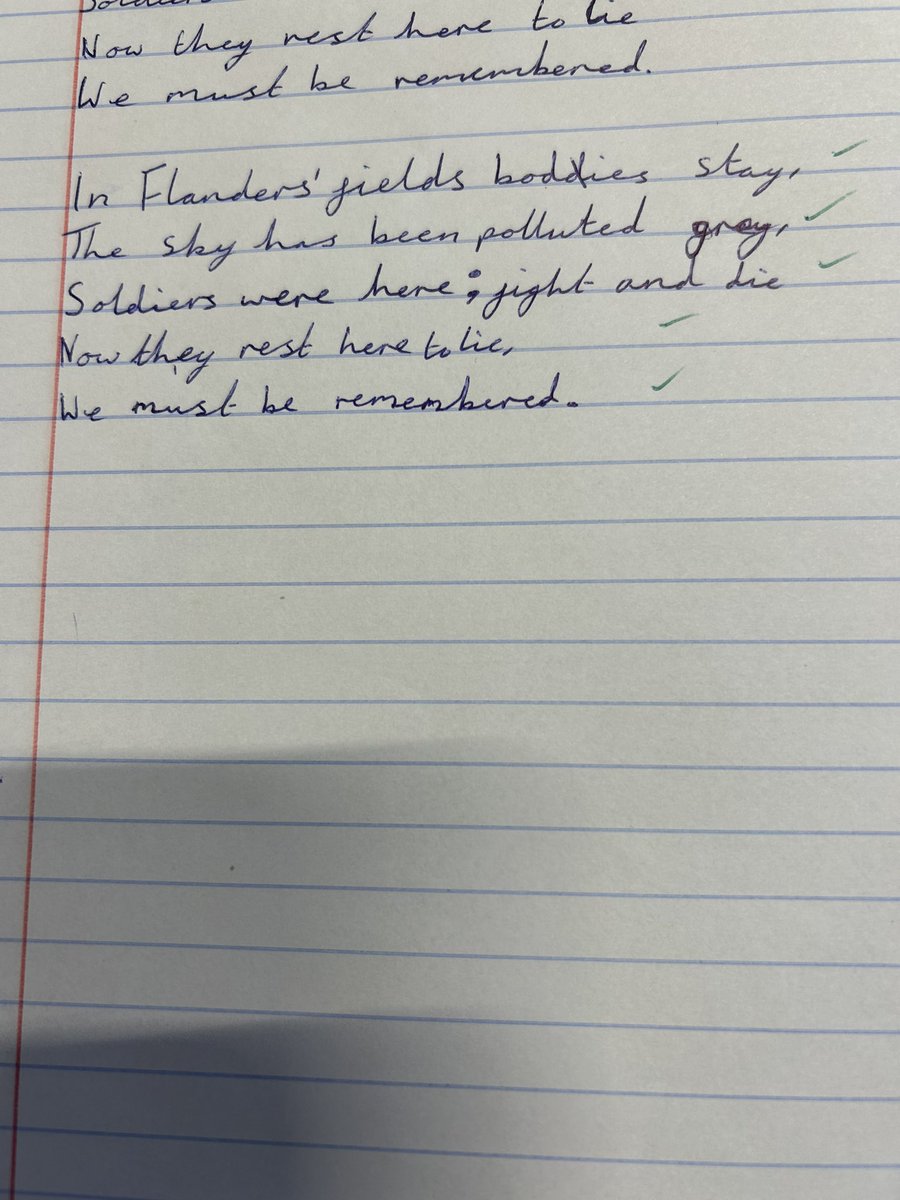 Soldiers
Now they rest here to lie
We must be remembered.
In Flanders' fields boddies stay,
The sky has been polluted grey,
Soldiers were here; fight and die
Now they rest here to lie,
We must be remembered.